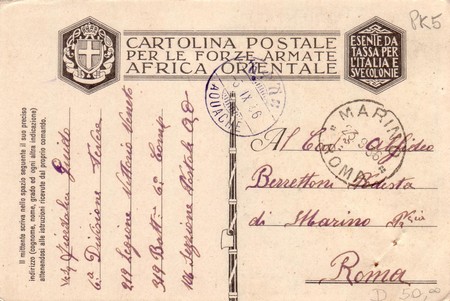 PK5
CARTOLINA POSTALE
PER LE FORZE ARMATE
AFRICA ORIENTALE
ESENTE DA
TASSA PER
L'ITALIA E
SVE COLONIE
IX 36
MARINO
ROMA
Il mittente scriva nello spazio seguente il suo preciso
indirizzo (cognome, nome, grado ed ogni altra indicazione)
attenendosi alle istruzioni ricevute dal proprio comando.
Guido
6a Divisione Tevere
219 Legione Vittorio Veneto
319 Batt. 6a Comp
Sezione Postale A.O
Al Alfideo
Berrettoni Podestà
di Marino
Roma
D 50,00